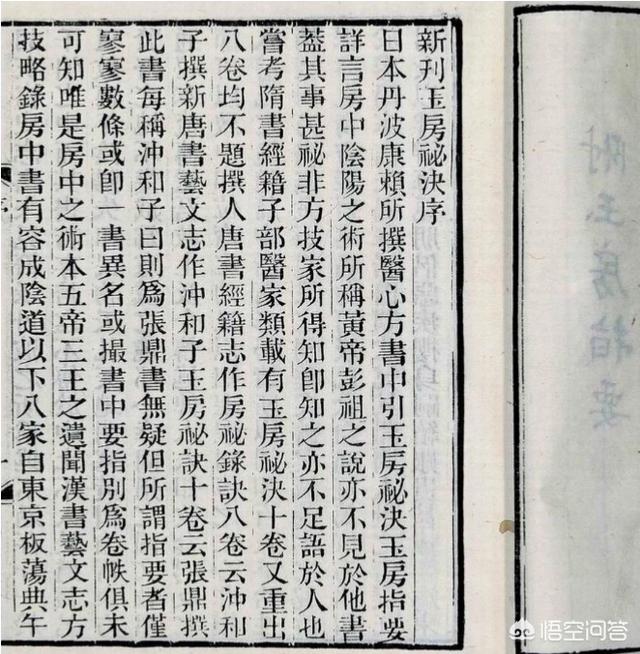 新刊玉房祕決序
日本丹波康賴所撰醫心方書中引玉房祕決玉房指要
詳言房中陰陽之術所稱黃帝彭祖之說亦不見於他書
蓋其事甚祕非方技家所得知卽知之亦不足語於人也
嘗考隋書經籍子部醫家類載有玉房祕決十卷又重出
八卷均不題撰人唐書經籍志作房祕錄訣八卷云沖和
子撰新唐書藝文志作沖和子玉房祕訣十卷云張鼎撰
此書每稱沖和子曰則爲張鼎書無疑但所謂指要者僅
寥寥數條或卽一書異名或撮書中要指別爲卷帙俱未
可知唯是房中之術本五帝三王之遺聞漢書藝文志方
技略錄房中書有容成陰道以下八家自東京板蕩典午
序
一
附玉房指要
悟空问答